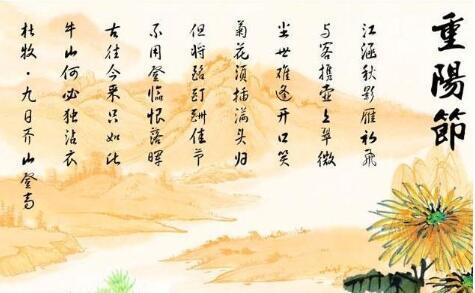 重陽節
江涵秋影雁初飞
与客携壶上翠微
尘世难逢开口笑
菊花须插满头归
但将酩酊酬佳节
不用登临恨落晖
古往今来只如此
牛山何必独沾衣
杜牧·九日齐山登高